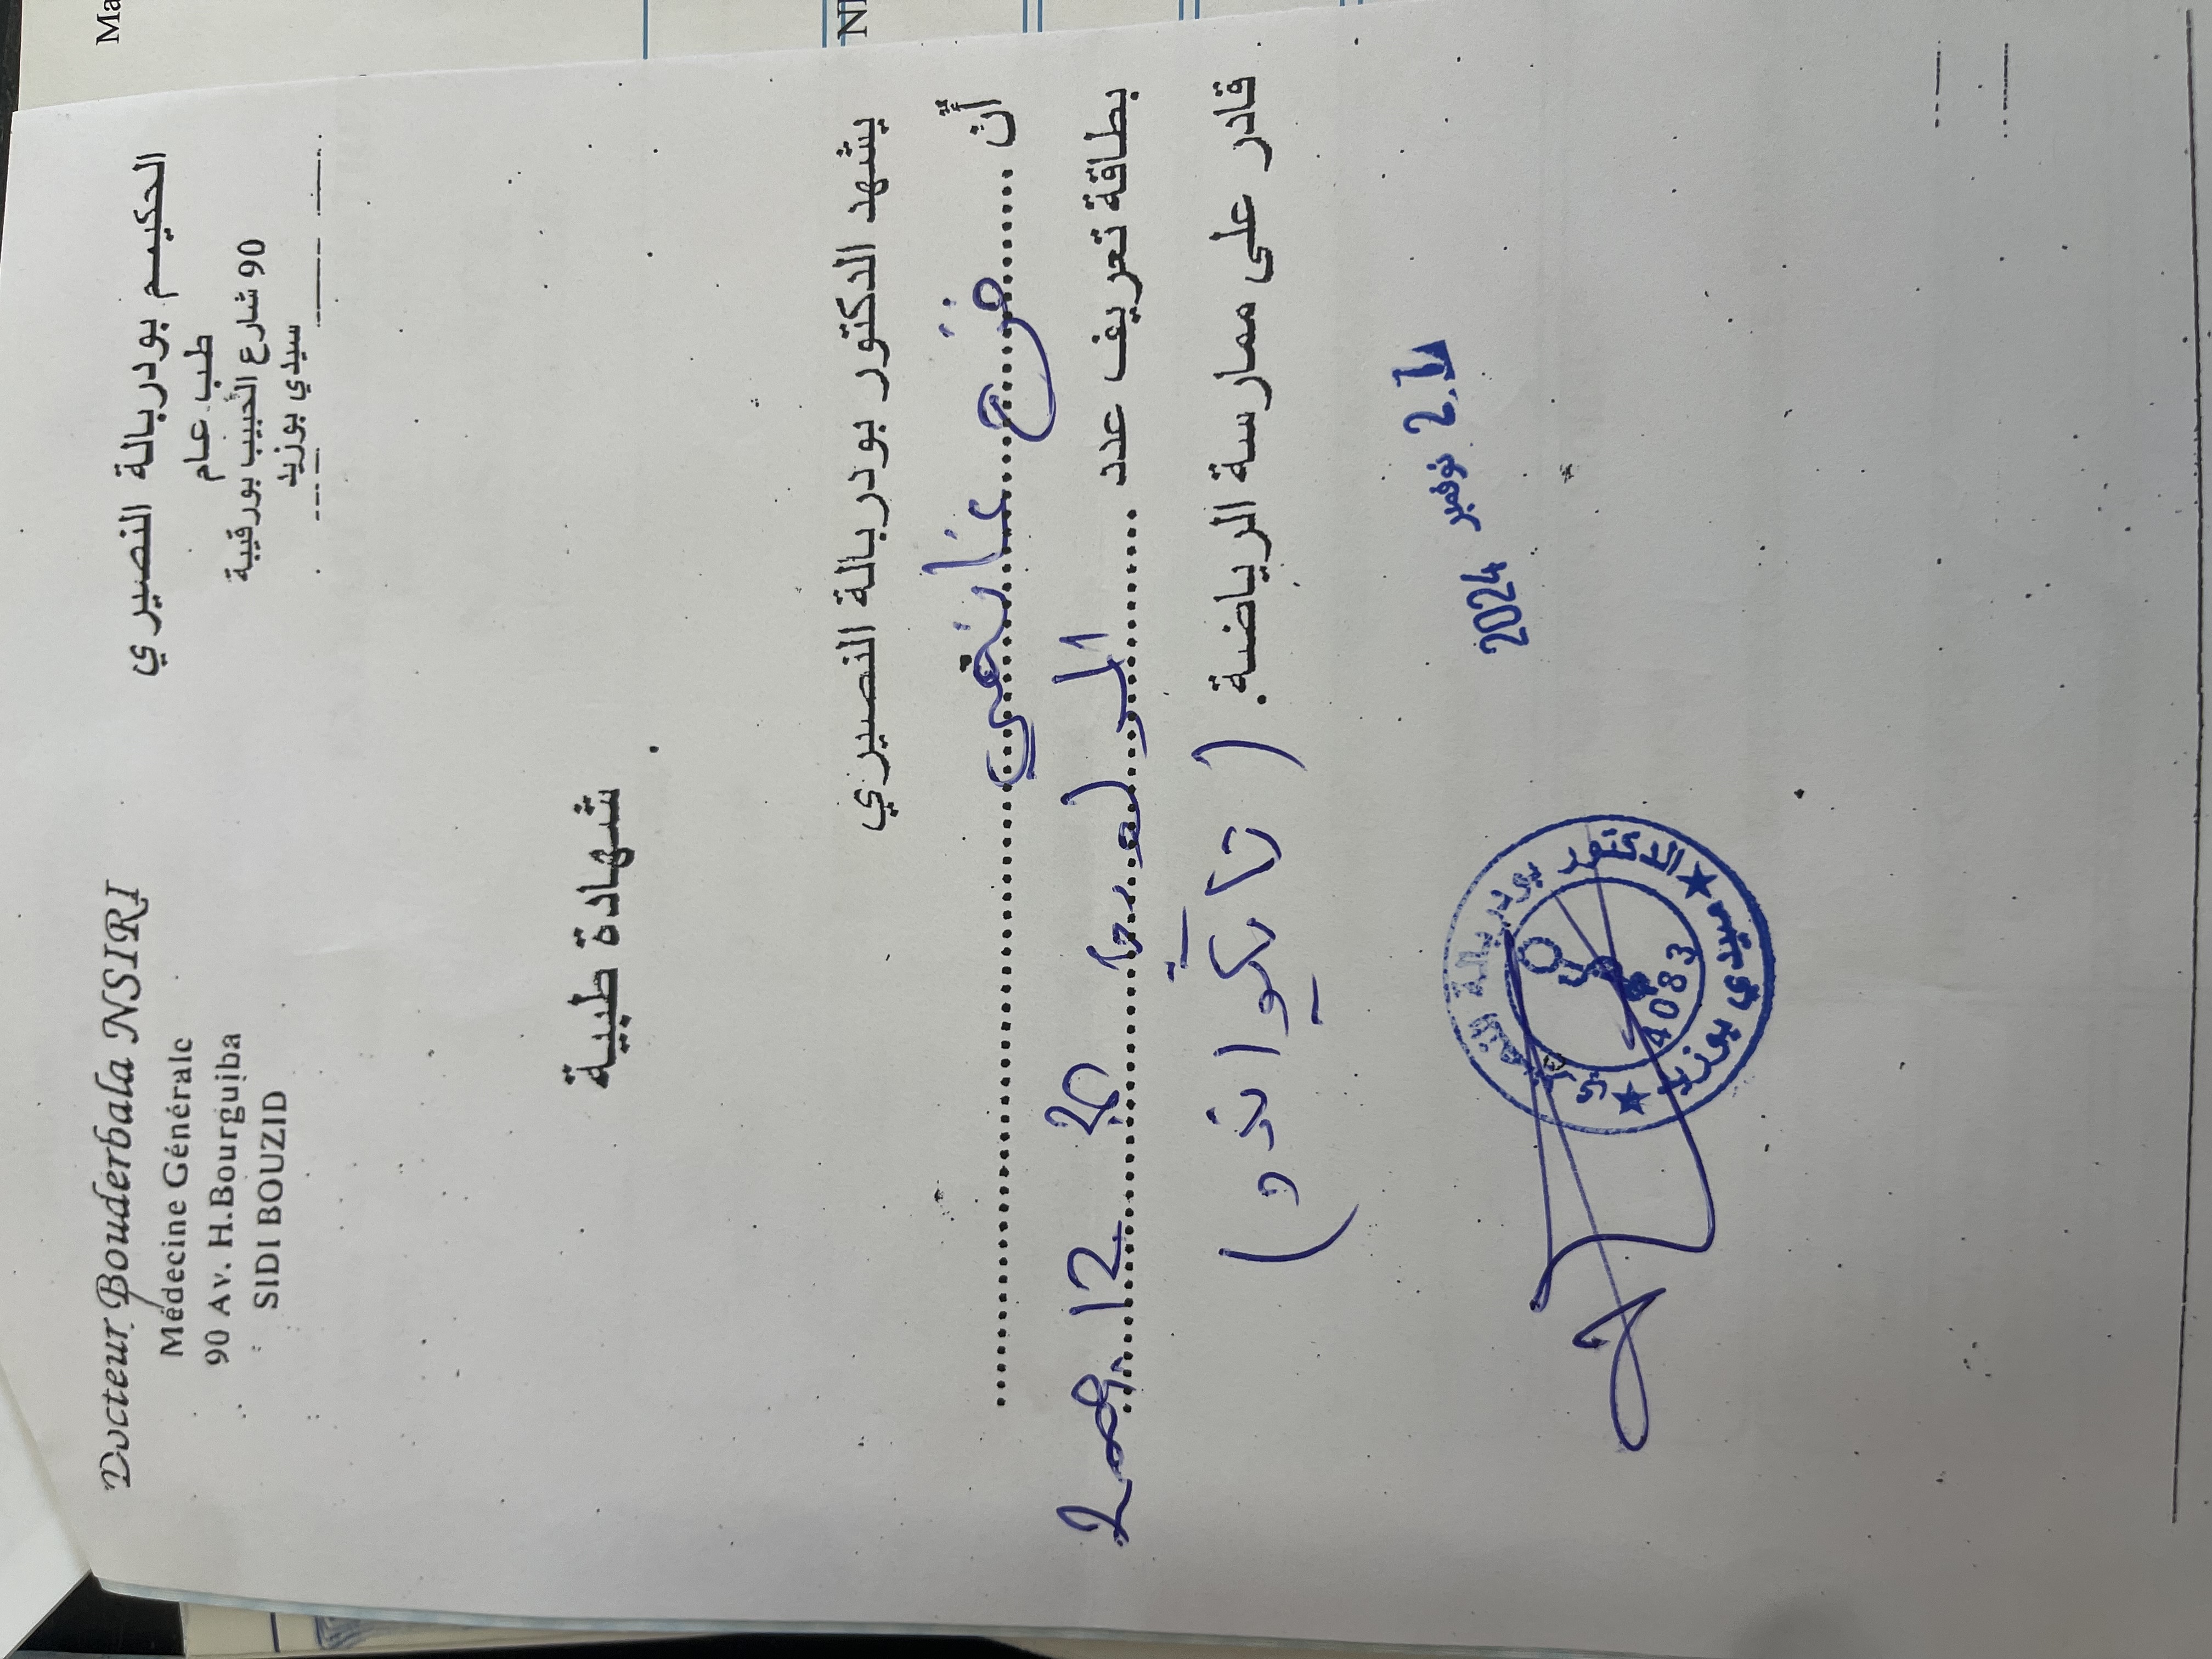 Docteur Bouderbala NSIRI
Médecine Générale
90 Av. H.Bourguiba
SIDI BOUZID
الحكيم بودربالة النصيري
طب عام
90 شارع الحبيب بورقيبة
سيدي بوزيد
شهادة طبية
يشهد الدكتور بودربالة النصيري
أن
بطاقة تعريف عدد المولود
قادر على ممارسة الرياضة. (تايكواندو)
21 نوفمبر 2024
الدكتور بودربالة النصيري
4083
سيدي بوزيد
Ma